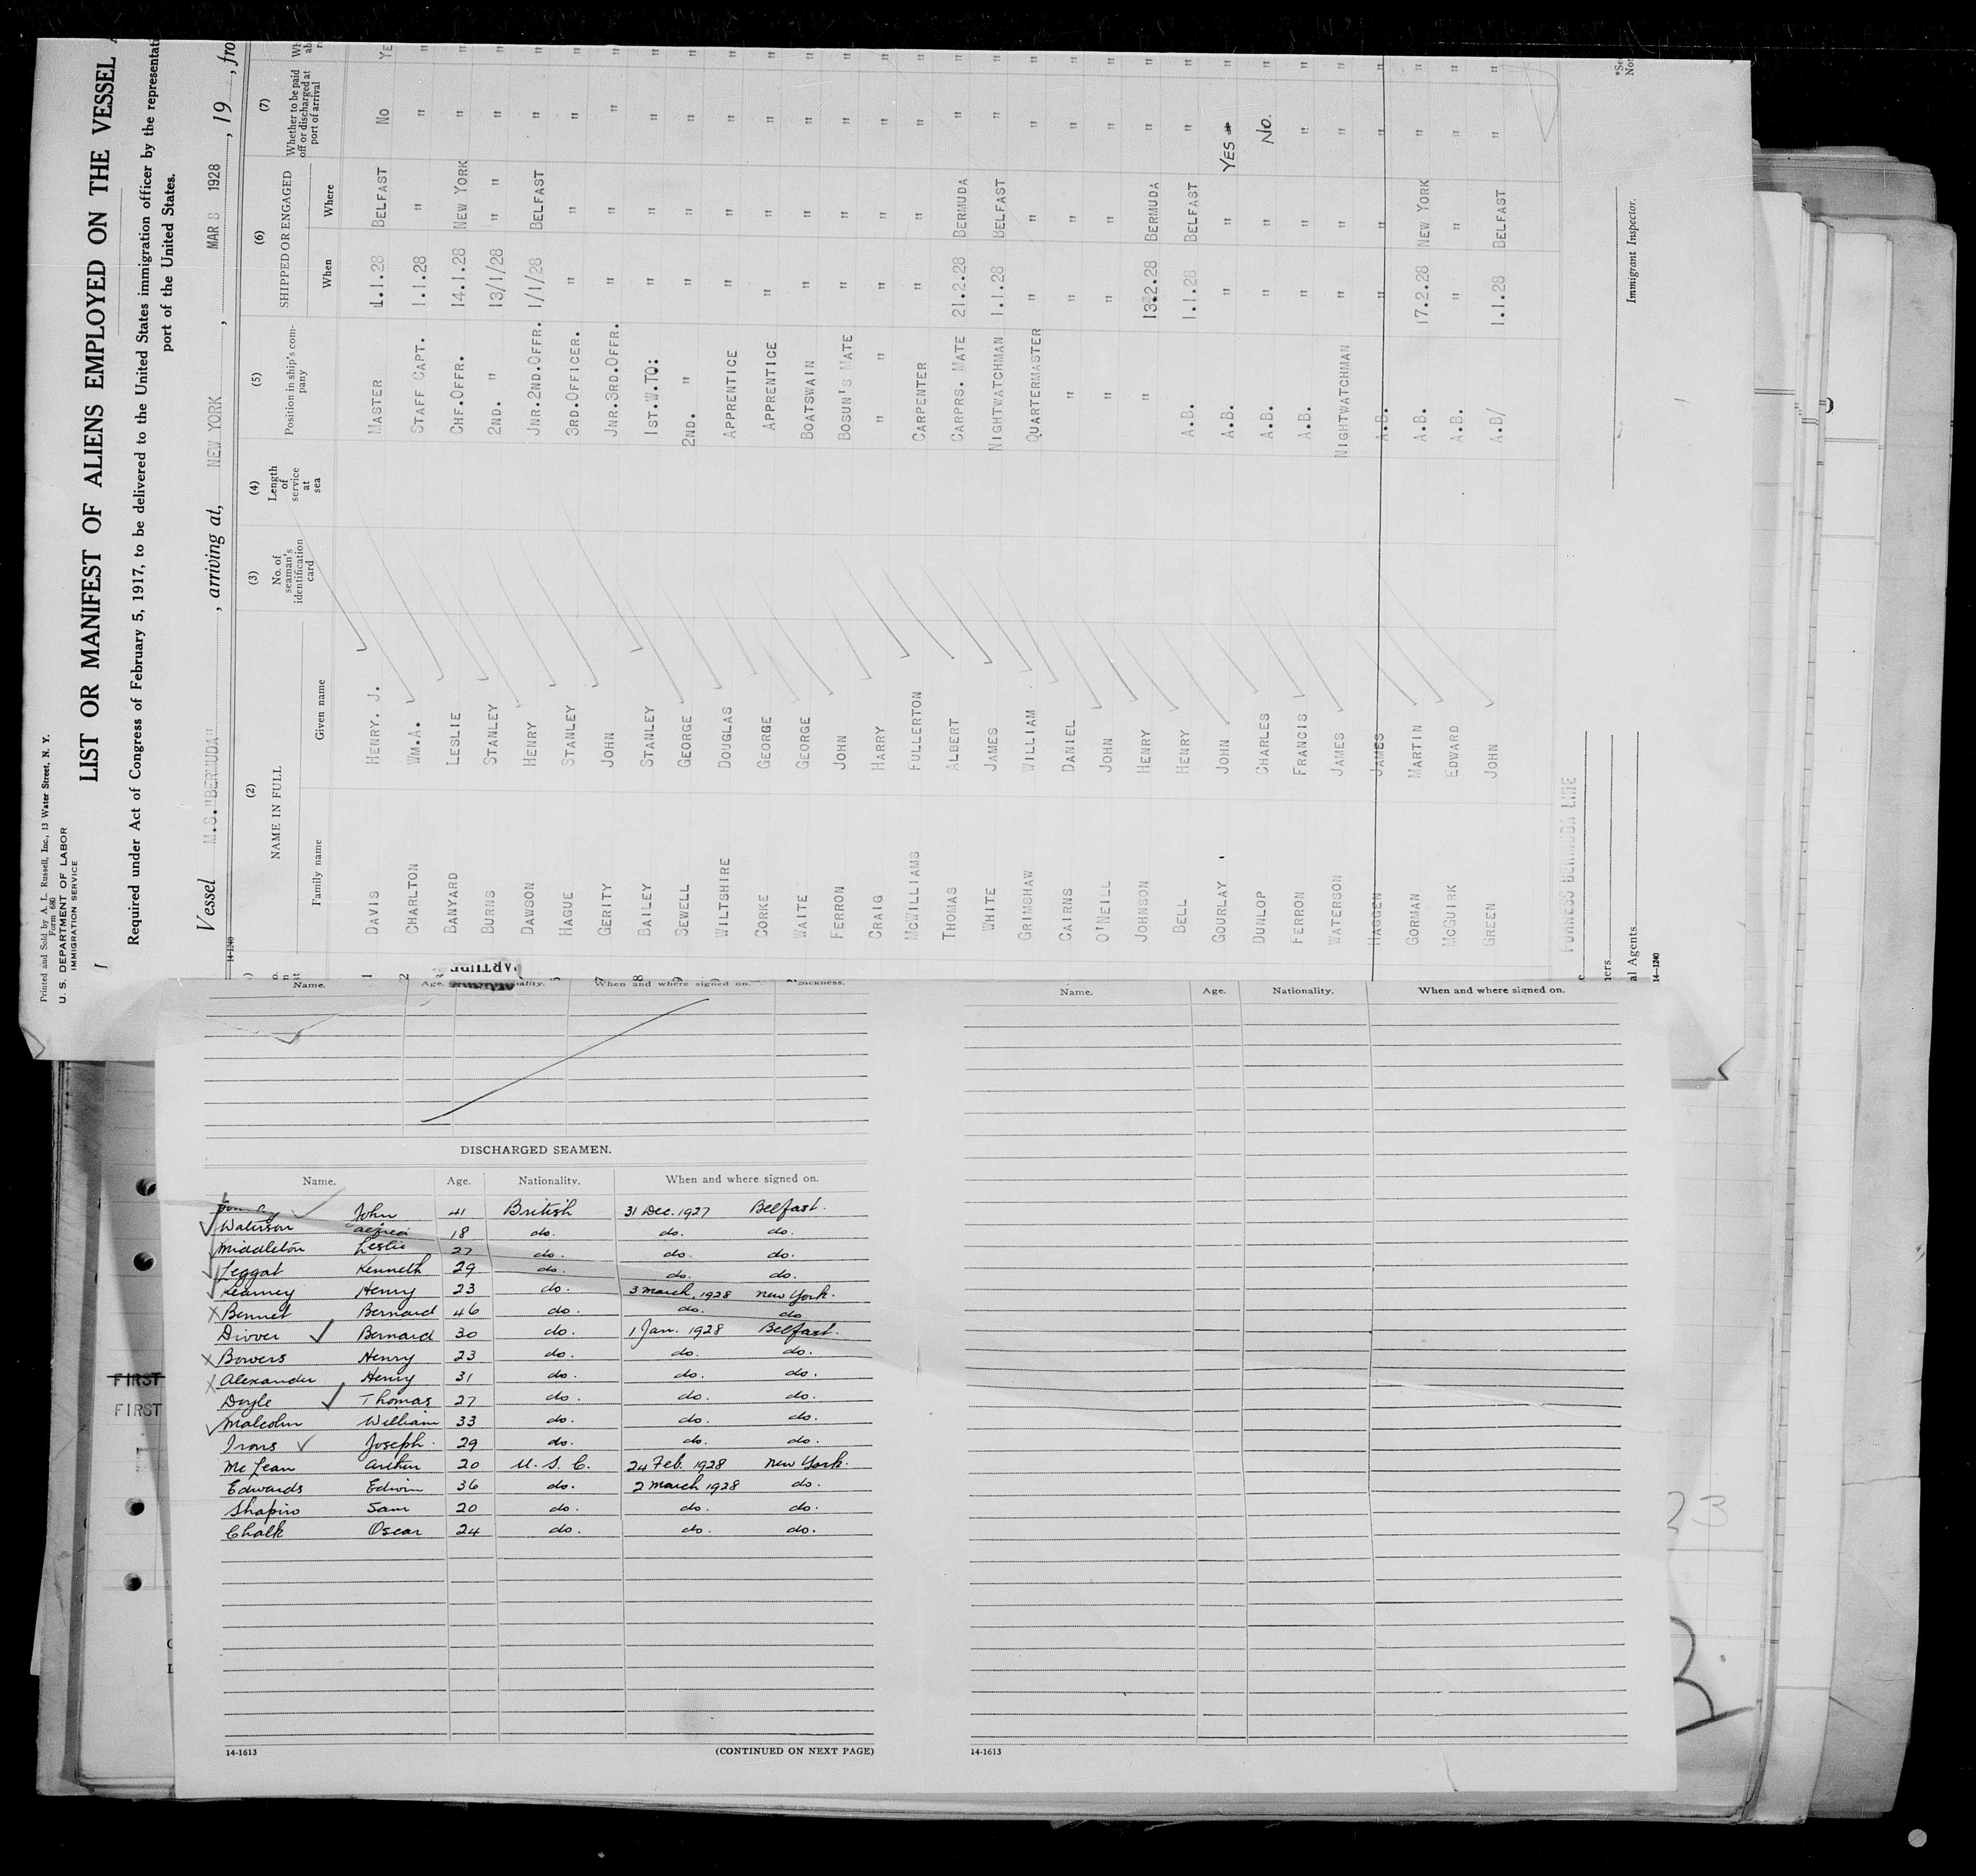 Printed and Sold by A. L. Russell, Inc., 13 Water Street, N. Y.
Form 680
U. S. DEPARTMENT OF LABOR
IMMIGRATION SERVICE
LIST OR MANIFEST OF ALIENS EMPLOYED ON THE VESSEL
Required under Act of Congress of February 5, 1917, to be delivered to the United States immigration officer by the representati
port of the United States.
Vessel M.S."BERMUDA", arriving at, NEW YORK, MAR 8 1928, 19, fro
14-1240
(2) (3) (4) (5) (6) (7)
NAME IN FULL
Family name Given name
No. of seaman's identification card
Length of service at sea
Position in ship's company
SHIPPED OR ENGAGED
When Where
Whether to be paid off or discharged at port of arrival
1 DAVIS HENRY. J. MASTER 1.1.28 BELFAST No YE
2 CHARLTON WM.A. STAFF CAPT. 1.1.28 " " "
BANYARD LESLIE CHF.OFFR. 14.1.28 NEW YORK " "
BURNS STANLEY 2ND. " 13/1/28 " " " "
DAWSON HENRY JNR.2ND.OFFR. 1/1/28 BELFAST " "
HAGUE STANLEY 3RD.OFFICER. " " " "
7 GERITY JOHN JNR.3RD.OFFR. " " " "
8 BAILEY STANLEY 1ST.W.TO: " " " "
9 SEWELL GEORGE 2ND. " " " " "
WILTSHIRE DOUGLAS APPRENTICE " " " "
CORKE GEORGE APPRENTICE " " " "
WAITE GEORGE BOATSWAIN " " " "
FERRON JOHN BOSUN'S MATE " " " "
CRAIG HARRY " " " " "
McWILLIAMS FULLERTON CARPENTER " " " "
THOMAS ALBERT CARPRS. MATE 21.2.28 BERMUDA " "
WHITE JAMES NIGHTWATCHMAN 1.1.28 BELFAST " "
GRIMSHAW WILLIAM QUARTERMASTER " " " "
CAIRNS DANIEL " " " " "
O'NEILL JOHN " " " " "
JOHNSON HENRY " 13.2.28 BERMUDA " "
BELL HENRY A.B. 1.1.28 BELFAST " "
GOURLAY JOHN A.B. " " YES "
DUNLOP CHARLES A.B. " " No. "
FERRON FRANCIS A.B. " " " "
WATERSON JAMES NIGHTWATCHMAN " " " "
HAGGEN JAMES A.B. " " " "
GORMAN MARTIN A.B. 17.2.28 NEW YORK " "
McGUIRK EDWARD A.B. " " " "
GREEN JOHN A.B/ 1.1.28 BELFAST " "
FURNESS BERMUDA LINE
Immigrant Inspector.
al Agents
14-1240
Name. Age. When and where signed on. Sickness.
DISCHARGED SEAMEN.
Name. Age. Nationality. When and where signed on.
John 41 British 31 Dec. 1927 Belfast.
Waterson 18 do. do. do.
Middleton Leslie 27 do. do. do.
Leggat Kenneth 29 do. do. do.
Kearney Henry 23 do. 3 March, 1928 New York.
Bennet Bernard 46 do. do. do.
Divver Bernard 30 do. 1 Jan. 1928 Belfast.
Bowers Henry 23 do. do. do.
Alexander Henry 31 do. do. do.
Doyle Thomas 27 do. do. do.
Malcolm William 33 do. do. do.
Irons Joseph. 29 do. do. do.
McLean Arthur 20 U. S. C. 24 Feb. 1928 New York.
Edwards Edwin 36 do. 2 March 1928 do.
Shapiro Sam 20 do. do. do.
Chalk Oscar 24 do. do. do.
14-1613
(CONTINUED ON NEXT PAGE)
Name. Age. Nationality. When and where signed on.
14-1613
FIRST
FIRST
23